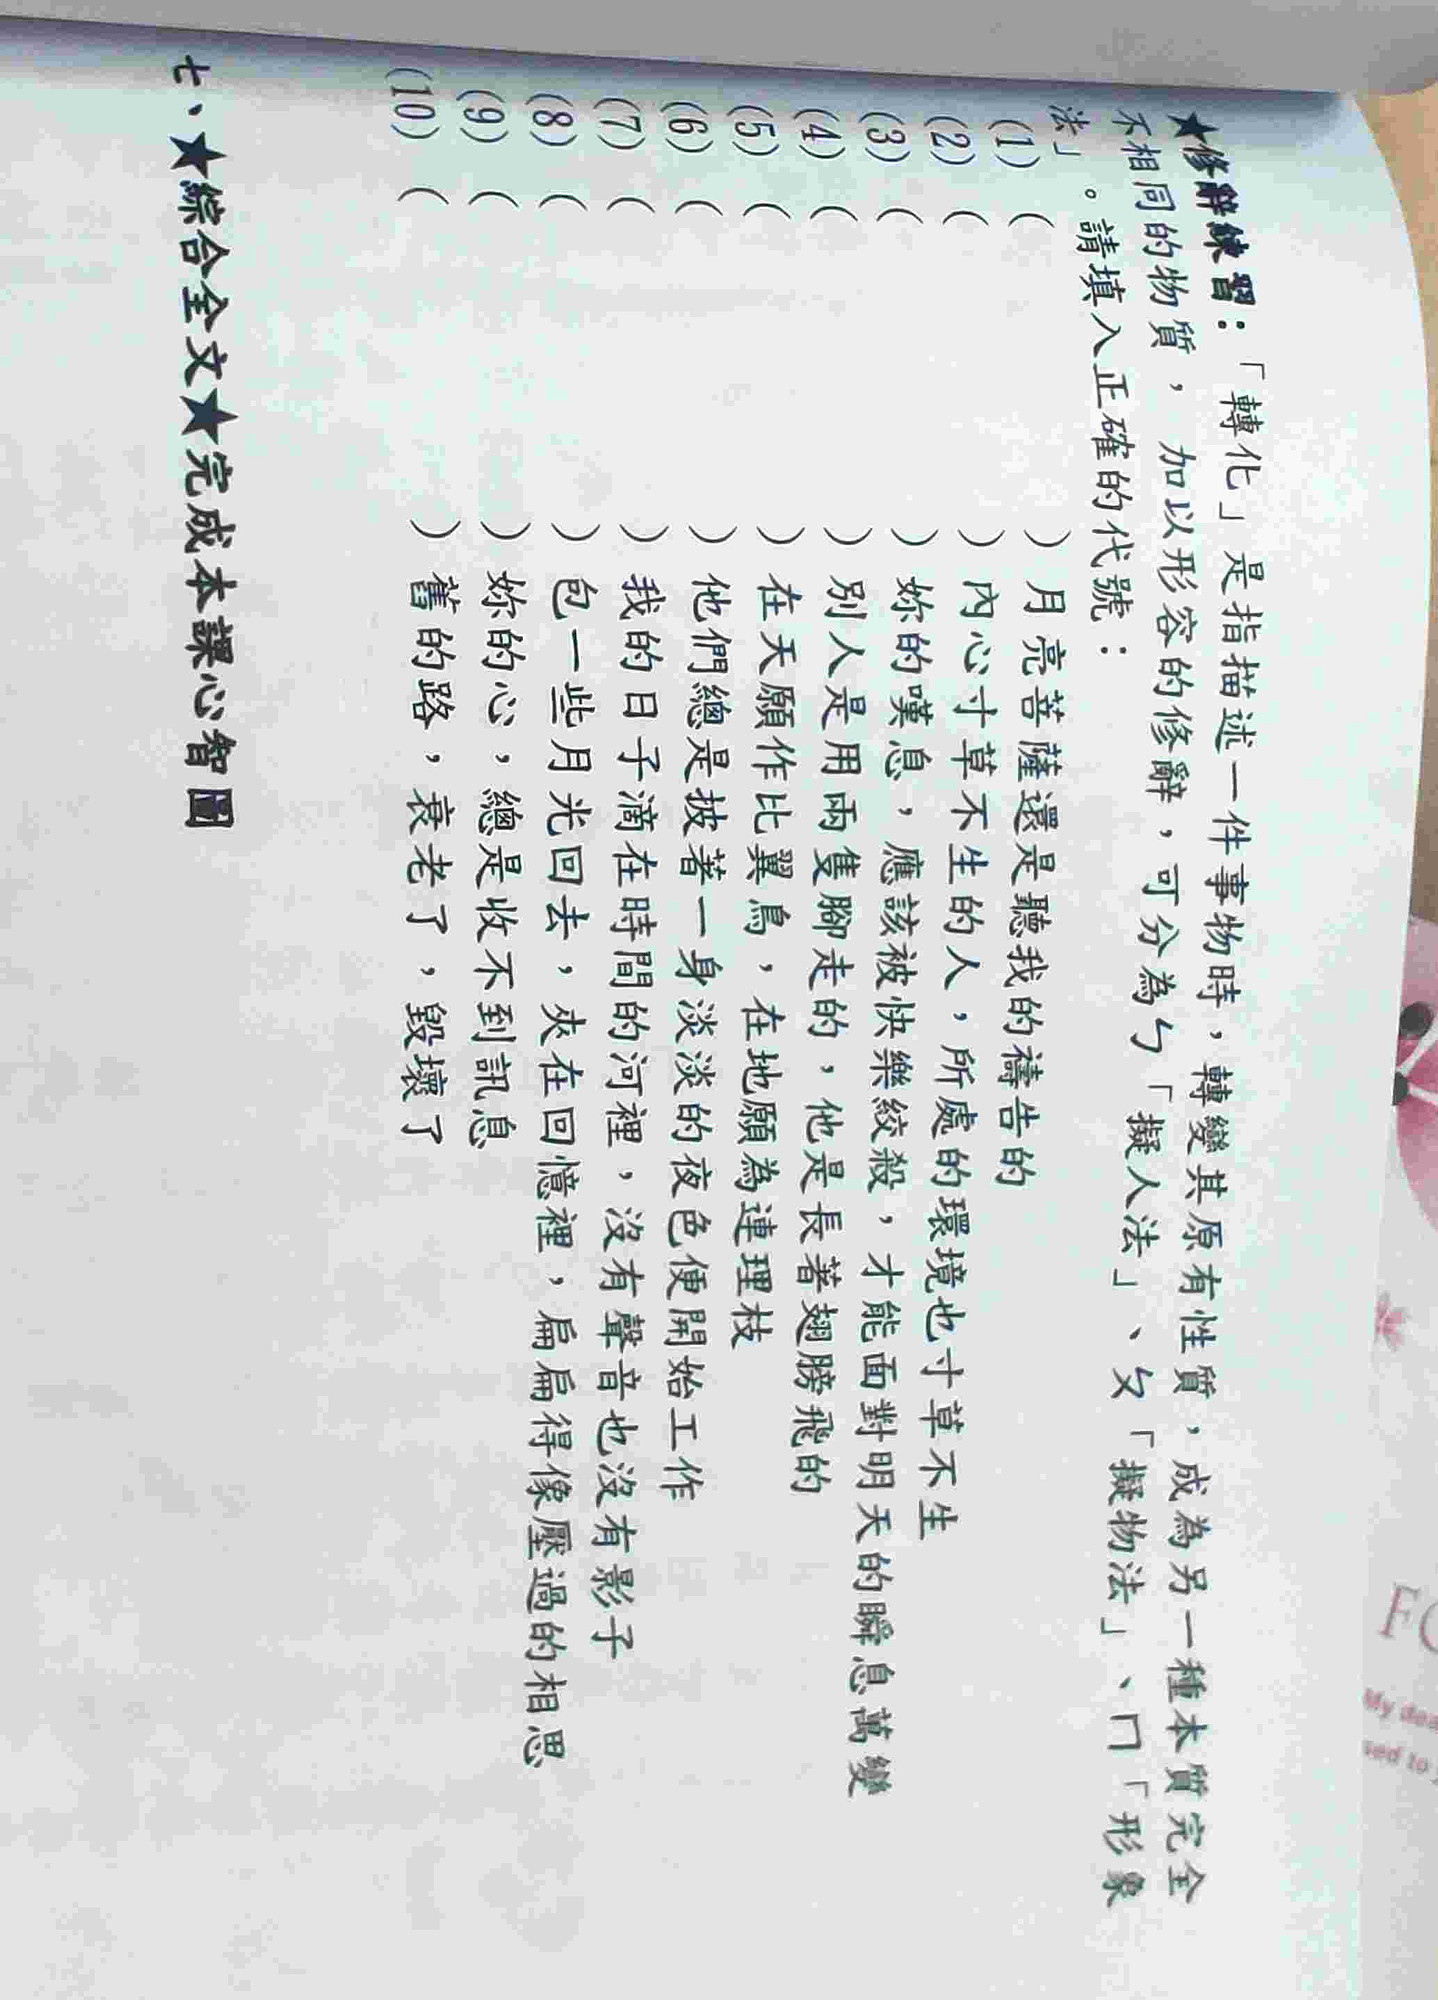 ★修辭練習：「轉化」是指描述一件事物時，轉變其原有性質，成為另一種本質完全
不相同的物質，加以形容的修辭，可分為ㄅ「擬人法」、ㄆ「擬物法」、ㄇ「形象
法」。請填入正確的代號：
(1)（ ）月亮菩薩還是聽我的禱告的
(2)（ ）內心寸草不生的人，所處的環境也寸草不生
(3)（ ）妳的嘆息，應該被快樂絞殺，才能面對明天的瞬息萬變
(4)（ ）別人是用兩隻腳走的，他是長著翅膀飛的
(5)（ ）在天願作比翼鳥，在地願為連理枝
(6)（ ）他們總是披著一身淡淡的夜色便開始工作
(7)（ ）我的日子滴在時間的河裡，沒有聲音也沒有影子
(8)（ ）包一些月光回去，夾在回憶裡，扁扁得像壓過的相思
(9)（ ）妳的心，總是收不到訊息
(10)（ ）舊的路，衰老了，毀壞了
七、★綜合全文★完成本課心智圖
My dea
sed to